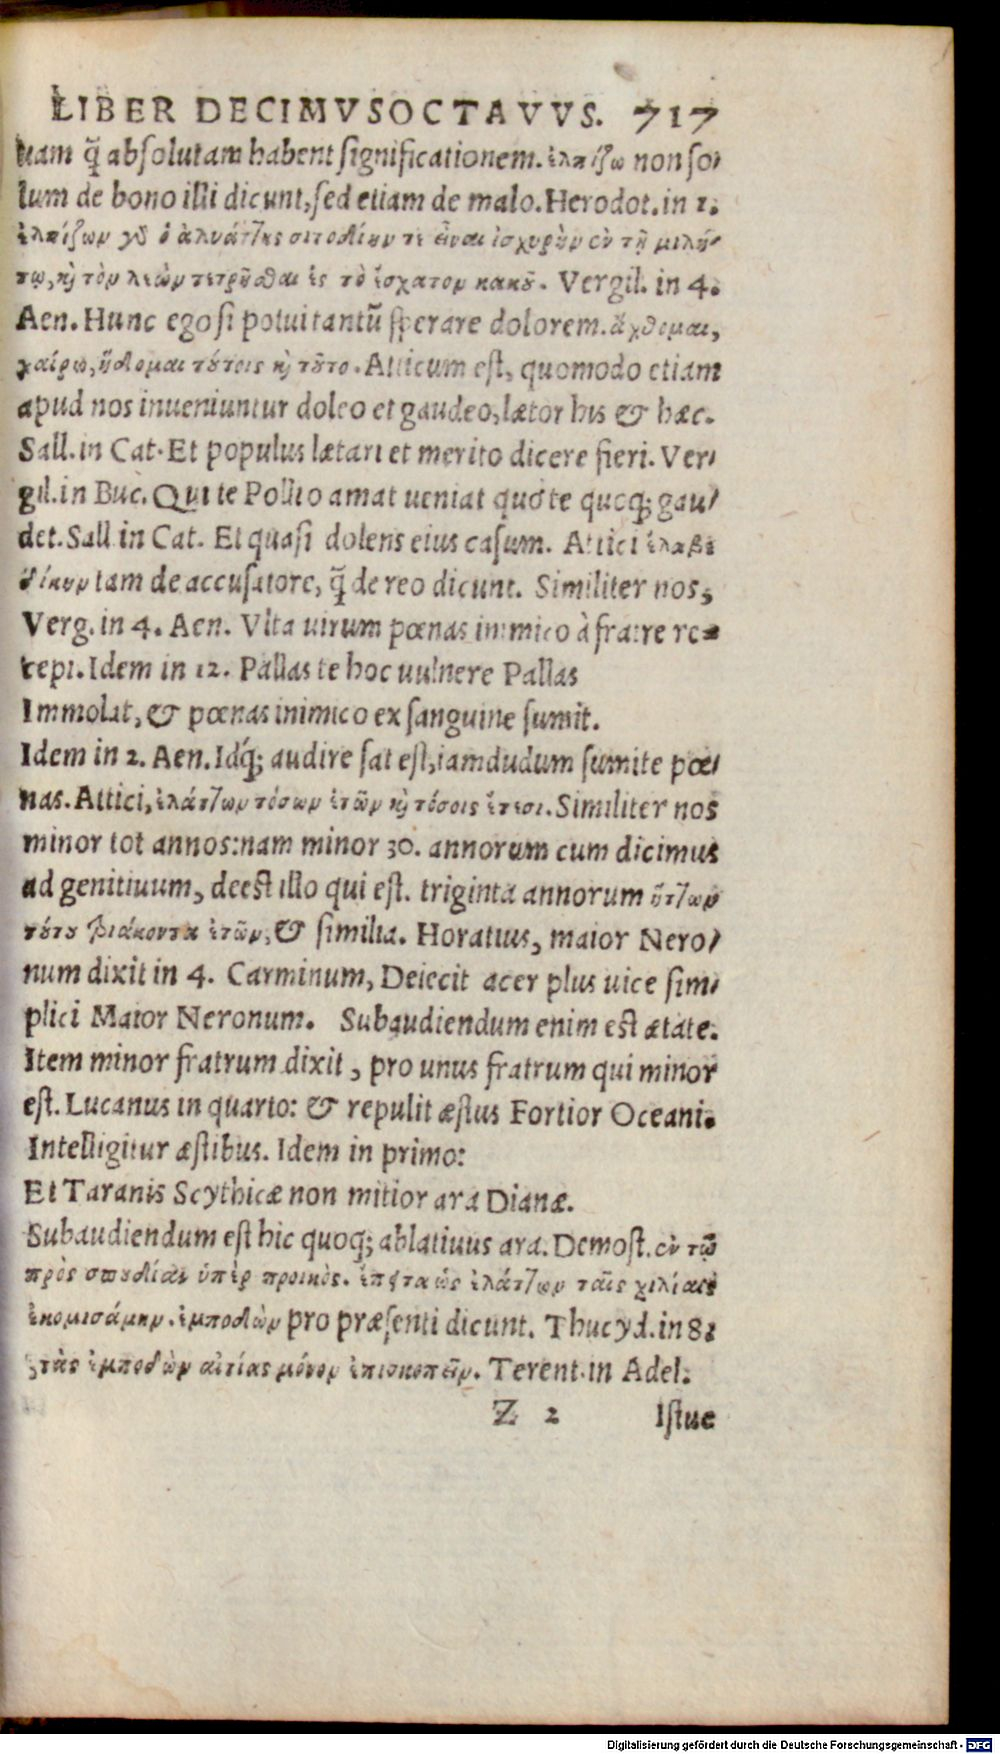 LIBER DECIMVSOCTAVVS. 717
uam q̃ absolutam habent significationem. ἐλπίζω non so/
lum de bono illi dicunt, sed etiam de malo. Herodot. in 1.
ἐλπίζων γὸ ὁ ἀλυάτ]ης σιτοδίην τε εἶναι ἰσχυρὴν ἐν τῇ μιλή/
τῳ, κỳ τὸν λεὼν τετρῦσθαι ἐς τὸ ἔσχατον κακȣ̃. Vergil. in 4.
Aen. Hunc ego si potui tantũ sperare dolorem. ἄχθομαι,
χαίρω, ἥδομαι τȣ́τοις κỳ τȣ̃το. Atticum est, quomodo etiam
apud nos inueniuntur doleo et gaudeo, lætor his & hæc.
Sall. in Cat. Et populus lætari et merito dicere fieri. Ver/
gil. in Buc. Qui te Pollio amat ueniat quò te quoq; gau/
det. Sall in Cat. Et quasi dolens eius casum. Attici ἔλαβε
δίκην tam de accusatore, q̃ de reo dicunt. Similiter nos,
Verg. in 4. Aen. Vlta uirum pœnas inimico à fratre re=
cepi. Idem in 12. Pallas te hoc uulnere Pallas
Immolat, & pœnas inimico ex sanguine sumit.
Idem in 2. Aen. Idq́; audire sat est, iamdudum sumite pœ/
nas. Attici, ἐλάτ]ων τόσων ἐτῶν κỳ τόσοις ἔτεσι. Similiter nos
minor tot annos: nam minor 30. annorum cum dicimus
ad genitiuum, deest illo qui est. triginta annorum ἥτ]ων
τȣ́τȣ τριάκοντα ἐτῶν, & similia. Horatius, maior Nero/
num dixit in 4. Carminum, Deiecit acer plus uice sim/
plici Maior Neronum. Subaudiendum enim est ætate.
Item minor fratrum dixit, pro unus fratrum qui minor
est. Lucanus in quarto: & repulit æstus Fortior Oceani.
Intelligitur æstibus. Idem in primo:
Et Taranis Scythicæ non mitior ara Dianæ.
Subaudiendum est hic quoq; ablatiuus ara. Demost. ἐν τῷ
πρὸς σπȣδίαν ὑπὲρ προικὸς. ἔπειτα ὡς ἐλάτ]ων ταῖς χιλίαις
ἐκομισάμην. ἐμποδὼν pro præsenti dicunt. Thucyd. in 8:
τὰς ἐμποδὼν αἰτίας μόνον ἐπισκοπεῖν. Terent. in Adel.
Z 2 Istuc
Digitalisierung gefördert durch die Deutsche Forschungsgemeinschaft - DFG